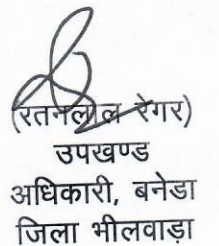 (रतनलाल रेगर)
उपखण्ड
अधिकारी, बनेडा
जिला भीलवाड़ा